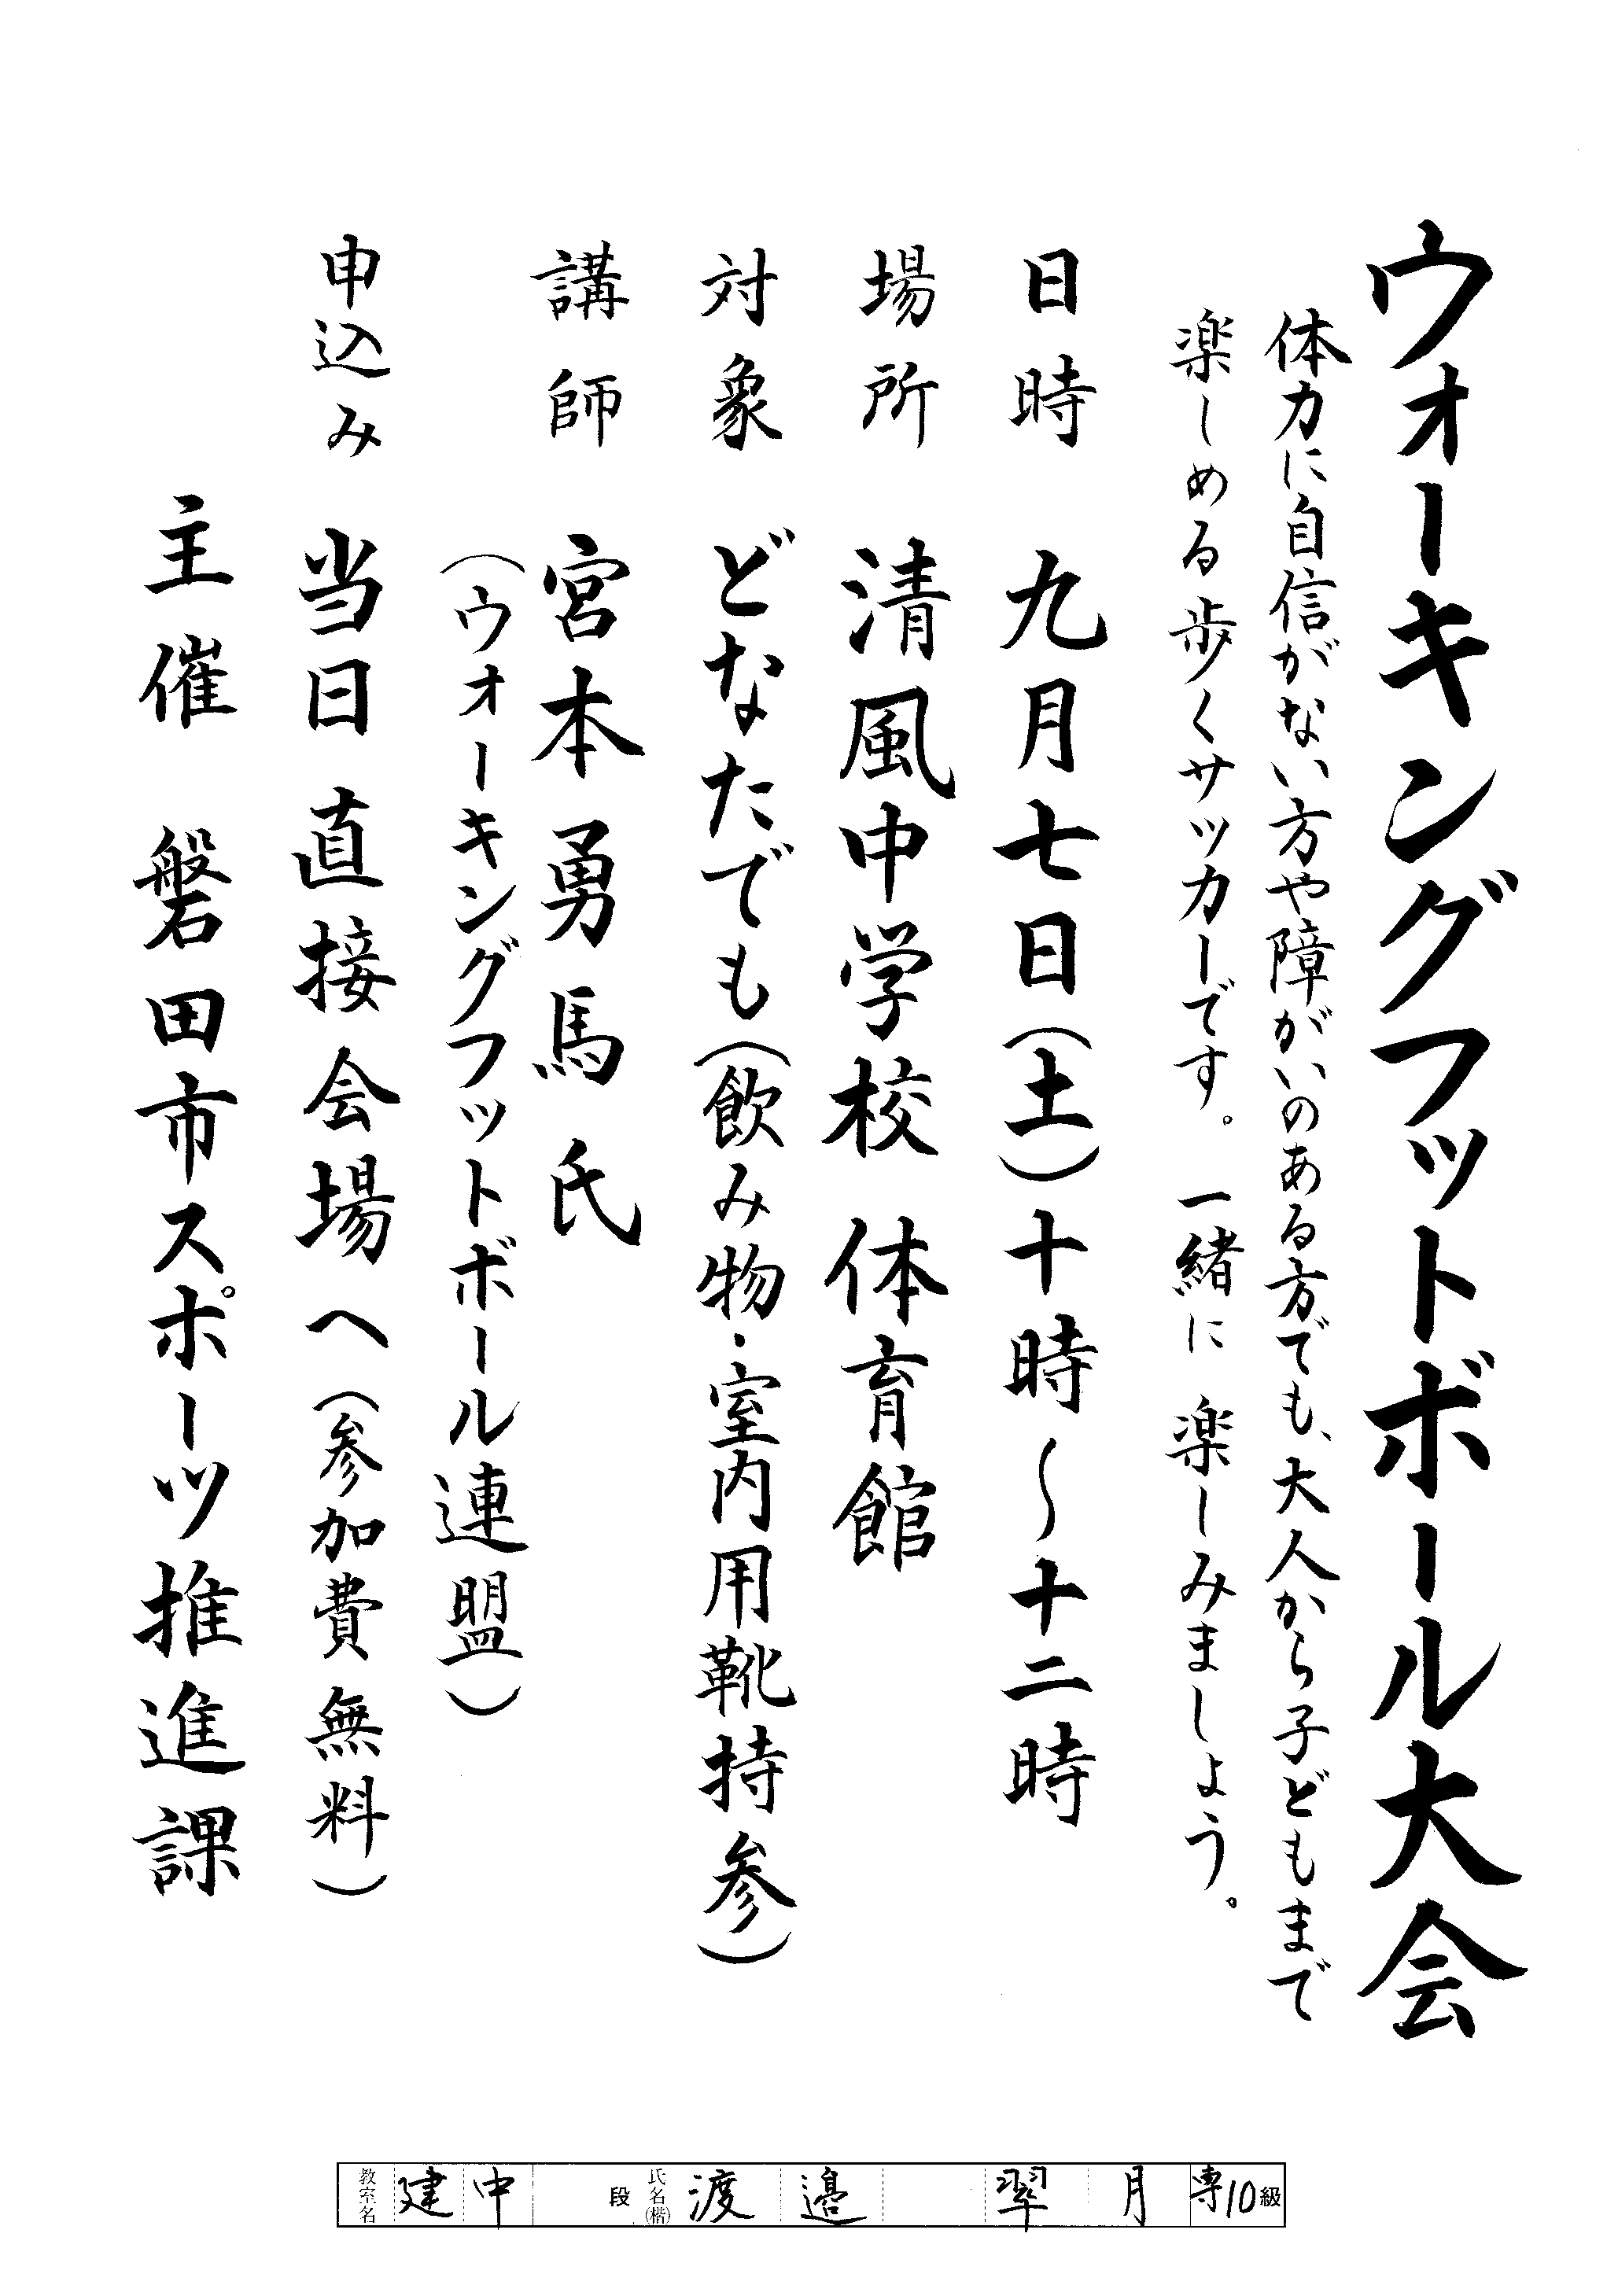 ウォーキングフットボール大会
体力に自信がない方や障がいのある方でも、大人から子どもまで
楽しめる歩くサッカーです。一緒に楽しみましょう。
日時 九月七日(土)十時〜十二時
場所 清風中学校 体育館
対象 どなたでも(飲み物・室内用靴持参)
講師 宮本勇馬氏
(ウォーキングフットボール連盟)
申込み 当日直接会場へ(参加費無料)
主催 磐田市スポーツ推進課
教室名 建中 段 氏名(楷) 渡邉 翠月 専10級